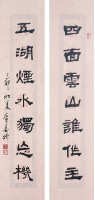 四面雲山誰作主
五湖煙水獨忘機